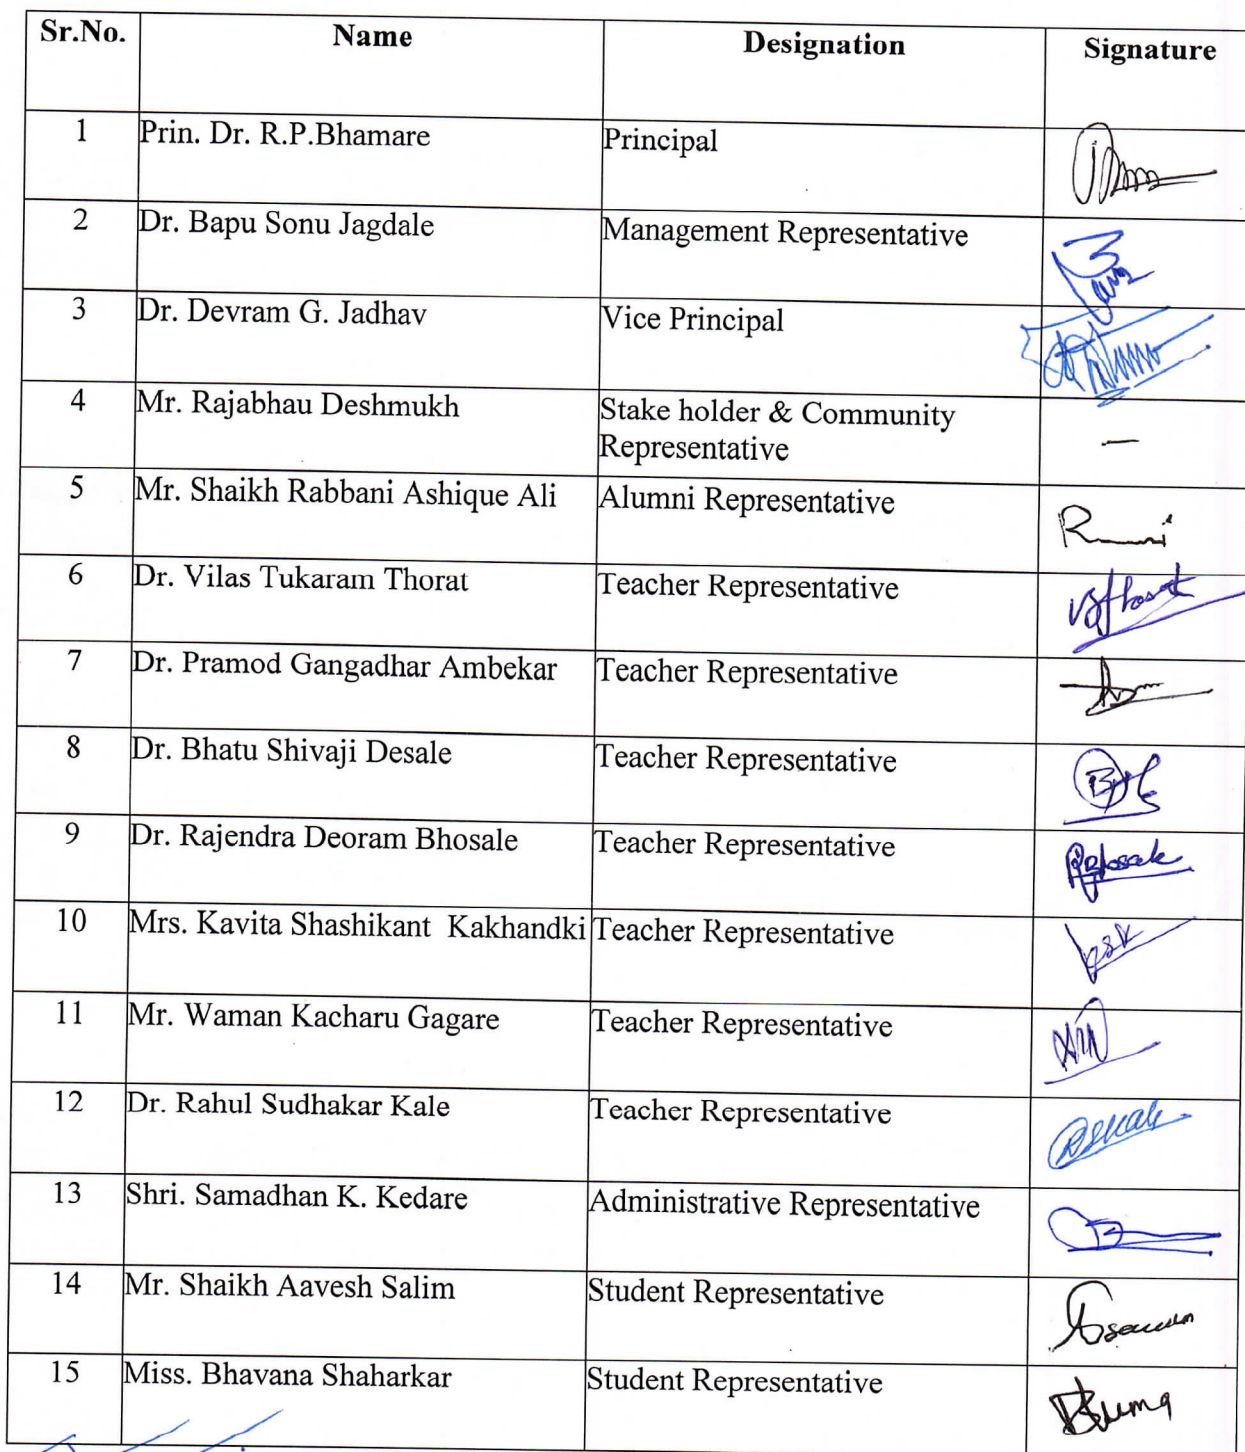 Sr.No. Name Designation Signature
1 Prin. Dr. R.P.Bhamare Principal
2 Dr. Bapu Sonu Jagdale Management Representative
3 Dr. Devram G. Jadhav Vice Principal
4 Mr. Rajabhau Deshmukh Stake holder & Community
Representative —
5 Mr. Shaikh Rabbani Ashique Ali Alumni Representative
6 Dr. Vilas Tukaram Thorat Teacher Representative
7 Dr. Pramod Gangadhar Ambekar Teacher Representative
8 Dr. Bhatu Shivaji Desale Teacher Representative
9 Dr. Rajendra Deoram Bhosale Teacher Representative
10 Mrs. Kavita Shashikant Kakhandki Teacher Representative
11 Mr. Waman Kacharu Gagare Teacher Representative
12 Dr. Rahul Sudhakar Kale Teacher Representative
13 Shri. Samadhan K. Kedare Administrative Representative
14 Mr. Shaikh Aavesh Salim Student Representative
15 Miss. Bhavana Shaharkar Student Representative